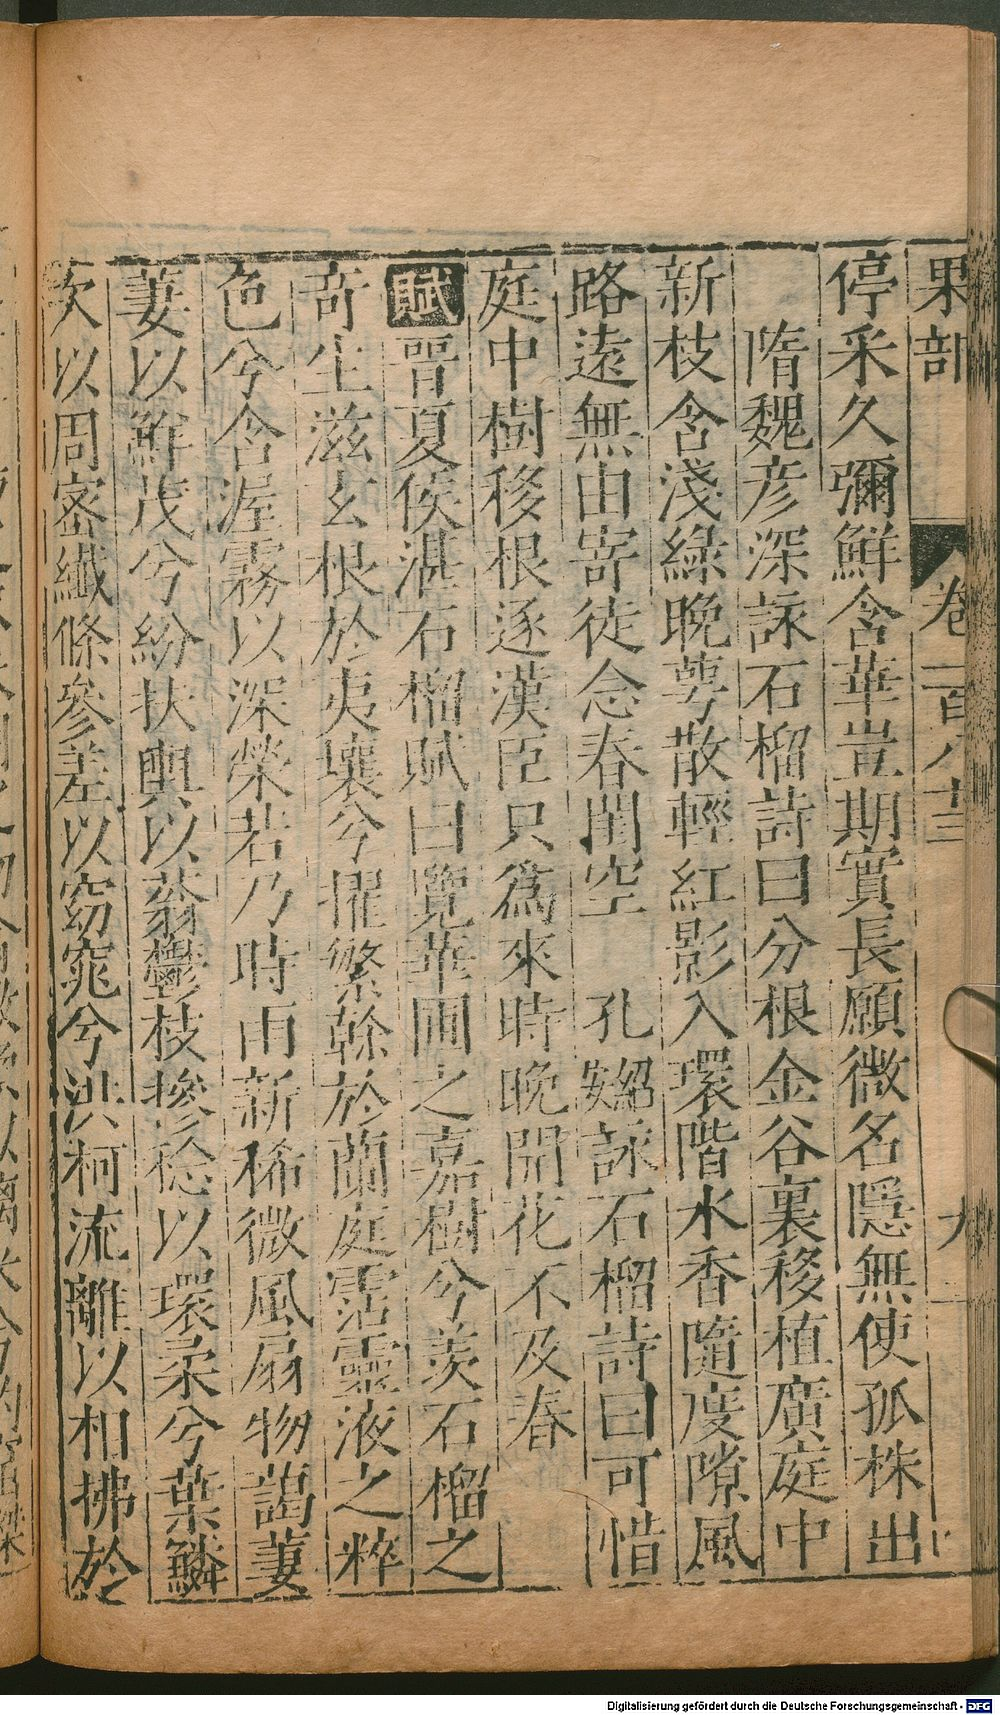 果部 卷一百八十三 九
停采久彌鮮含華豈期實長願微名隱無使孤株出
隋魏彦深詠石榴詩曰分根金谷裏移植廣庭中
新枝含淺綠晚萼散輕紅影入環階水香隨度隙風
路遠無由寄徒念春閨空 孔紹詠石榴詩曰可惜
庭中樹移根逐漢臣只爲來時晚開花不及春
賦晋夏侯湛石榴賦曰覽華圃之嘉樹兮羨石榴之
奇生滋玄根於夷壤兮擢繁幹於蘭庭霑靈液之粹
色兮含渥霧以深榮若乃時雨新稀微風扇物藹萋
萋以鮮茂兮紛扶輿以蓊鬱枝摻稔以環柔兮葉鱗
次以周密纖條參差以窈窕兮洪柯流離以相拂於
Digitalisierung gefördert durch die Deutsche Forschungsgemeinschaft - DFG